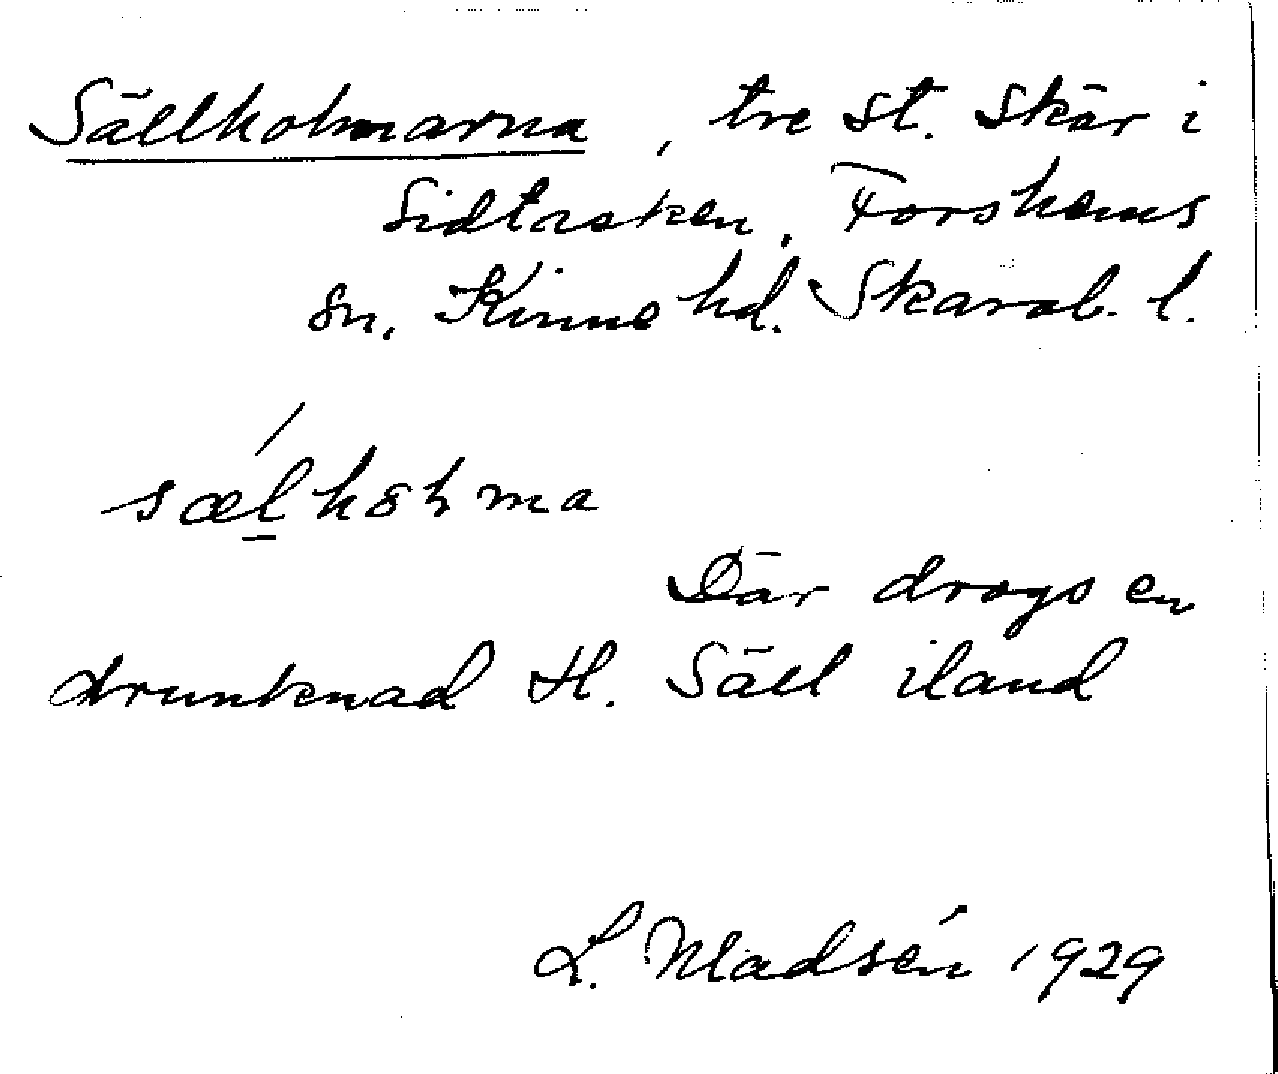 Sällholmarna, tre st. skär i
Sidtasken, Forshems
sn. Kinne hd. Skarab. l.
sælhoɫma
Där drogs en
drunknad H. Säll iland
L. Madsén 1929